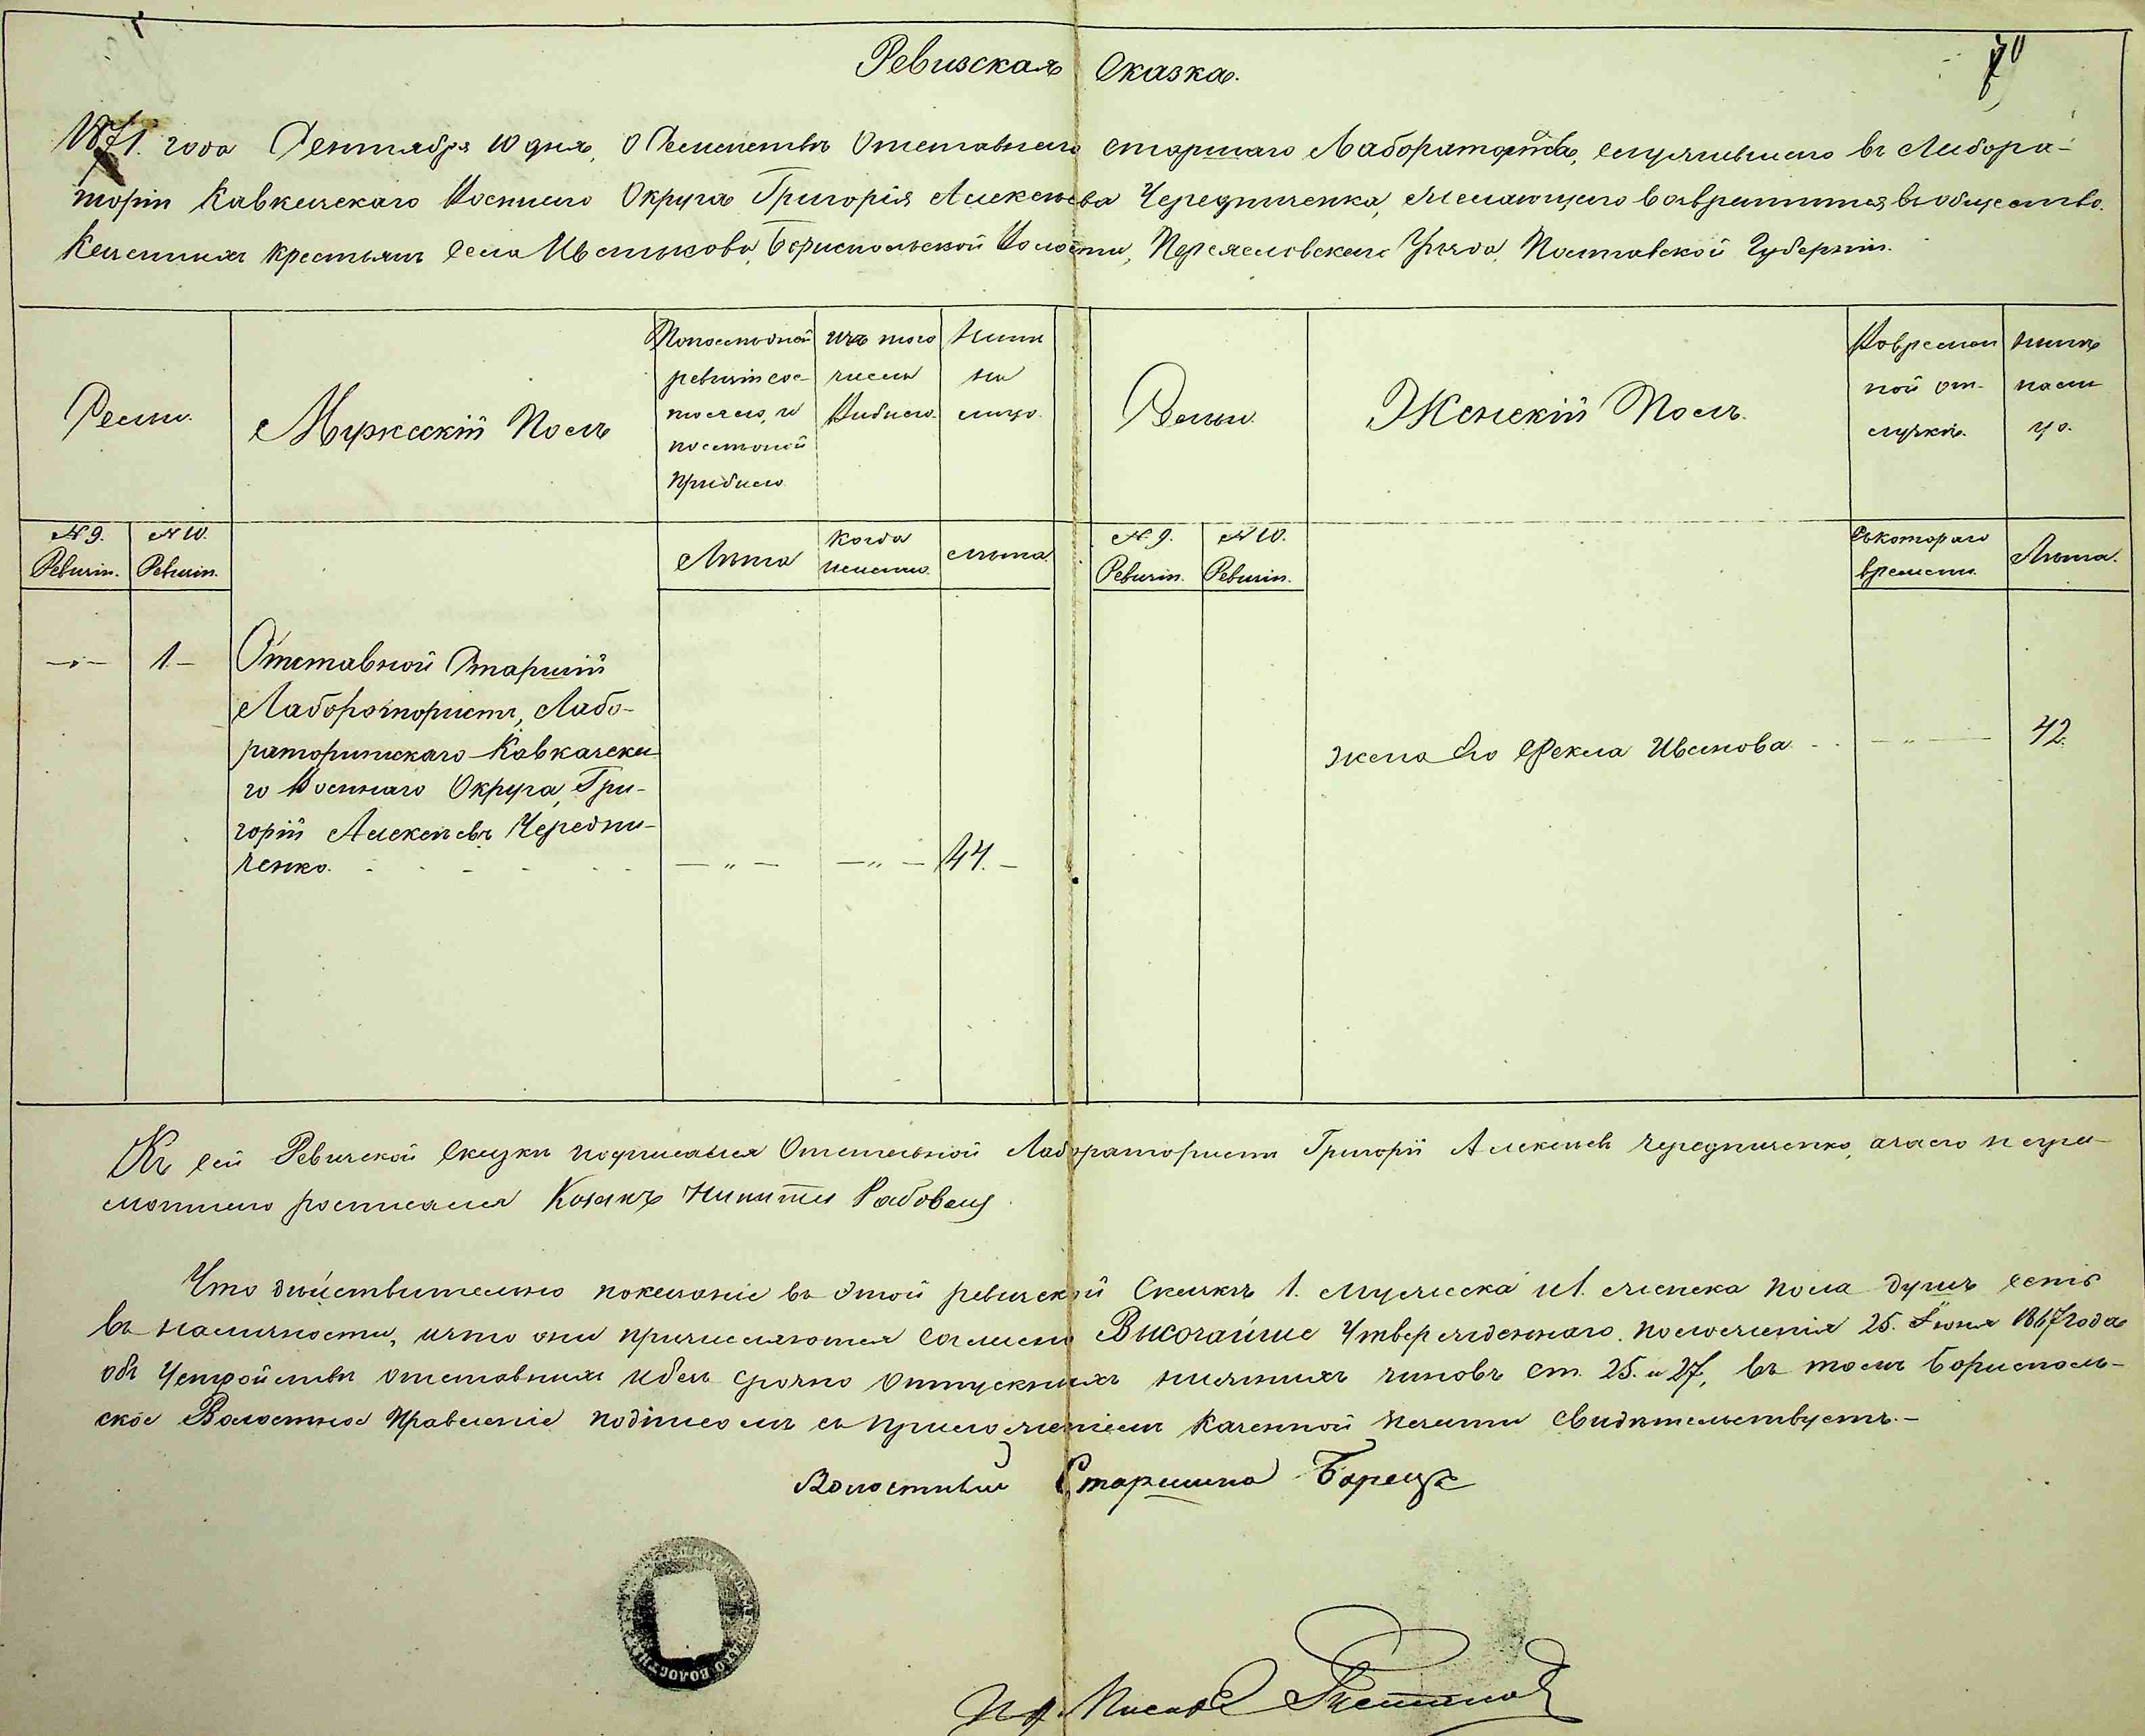 Ревизская Сказка.
70
1871. года Сентября 10 дня, о Семействѣ Отставнаго старшаго Лабораториста, служившаго въ Лабора-
торіи Кавказскаго Военнаго Округа Григорія Алексѣева Чередниченка, желающаго возвратится въ общество
Казенныхъ крестьянъ села Иванкова, Бориспольской Волости, Переяславскаго Уѣзда, Полтавской Губерніи.
Семьи.
Мужескій Полъ
По последней
ревизіи сос-
тояло, и
после оной
прибыло
изъ того
числа
Выбыло.
Ныне
на
лицо.
Семьи.
Женскій Полъ.
Во времен
ной от-
лучкѣ.
Нынѣ
на ли
цо.
№ 9.
Ревизіи.
№ 10.
Ревизіи.
Лѣта
Когда
именно.
Лѣта.
№ 9.
Ревизіи.
№ 10.
Ревизіи.
Съ котораго
времени.
Лѣта.
—"— 1.— Отставной Старшій
Лаборатористъ, Лабо-
раторискаго Кавказска
го Военнаго Округа, Гри-
горій Алексѣевъ Чередни-
ченко. — " — — " — 44.—
жена Его Фекла Иванова — " — 42.
Къ сей Ревизской Сказкѣ подписался Отставной Лаборатористъ Григорій Алексѣевъ Чередниченко, а за его негра

мотнаго росписался Козакъ Никита Рабовещ
Что действительно показаніе въ этой ревизской Сказкѣ 1. мужеска и 1. женска пола душъ естъ
въ наличности, и что они причисляются согласно Высочайше Утвержденнаго положенія 25. Іюня 1867 года
объ Устройствѣ отставныхъ и без срочно отпускныхъ нижнихъ чиновъ ст. 25. и 27, въ томъ Бориспольс-
кое Волостное Правленіе подписомъ съ приложеніемъ казенной печати свидѣтельствуетъ.—
Волостный Старшина Борецъ
И. д. Писаря